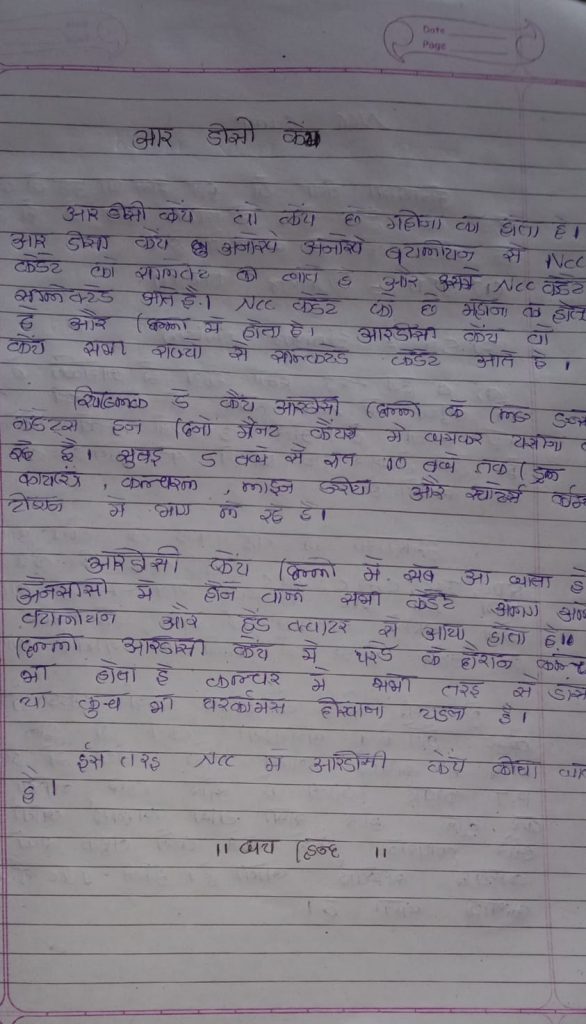 Date
Page
आर डीसी कैंप
आर डीसी कैंप जो कैंप छ महीना का होता है।
आर डीसी कैंप अनोखे अनोखे बटालीयन से NCC
कैडेट को सीलेक्ट की जाता है और उसमे NCC कैडेट
सलेक्टेड आते है। NCC कैडेट को छ महीना का होता
है और दिल्ली में होता है। आरडीसी कैंप जो
कैंप सभी राज्यों से सलेक्टेड कैडेट आते है।
रिपब्लिक डे कैंप आरडीसी दिल्ली के लिए
कैडेट्स इन दिनो कैंटर में जमकर पसीना
रहे है। सुबह 5 बजे से रात 10 बजे तक ड्रिल
कल्चरल, लाइन एरीया और
में भाग ले रहे है।
आरडीसी कैंप दिल्ली में सब आ जाता है
एनसीसी में होने वाले सभी कैडेट अलग
बटालीयन और हेड क्वाटर से आया होता है।
दिल्ली आरडीसी कैंप में परेड के दौरान
भी होता है कल्चर में सभी तरह से
या कुछ भी परफॉमस दीखाना पडता है।
ईस तरह NCC में आरडीसी कैंप कीया
है।
॥ जय हिन्द ॥